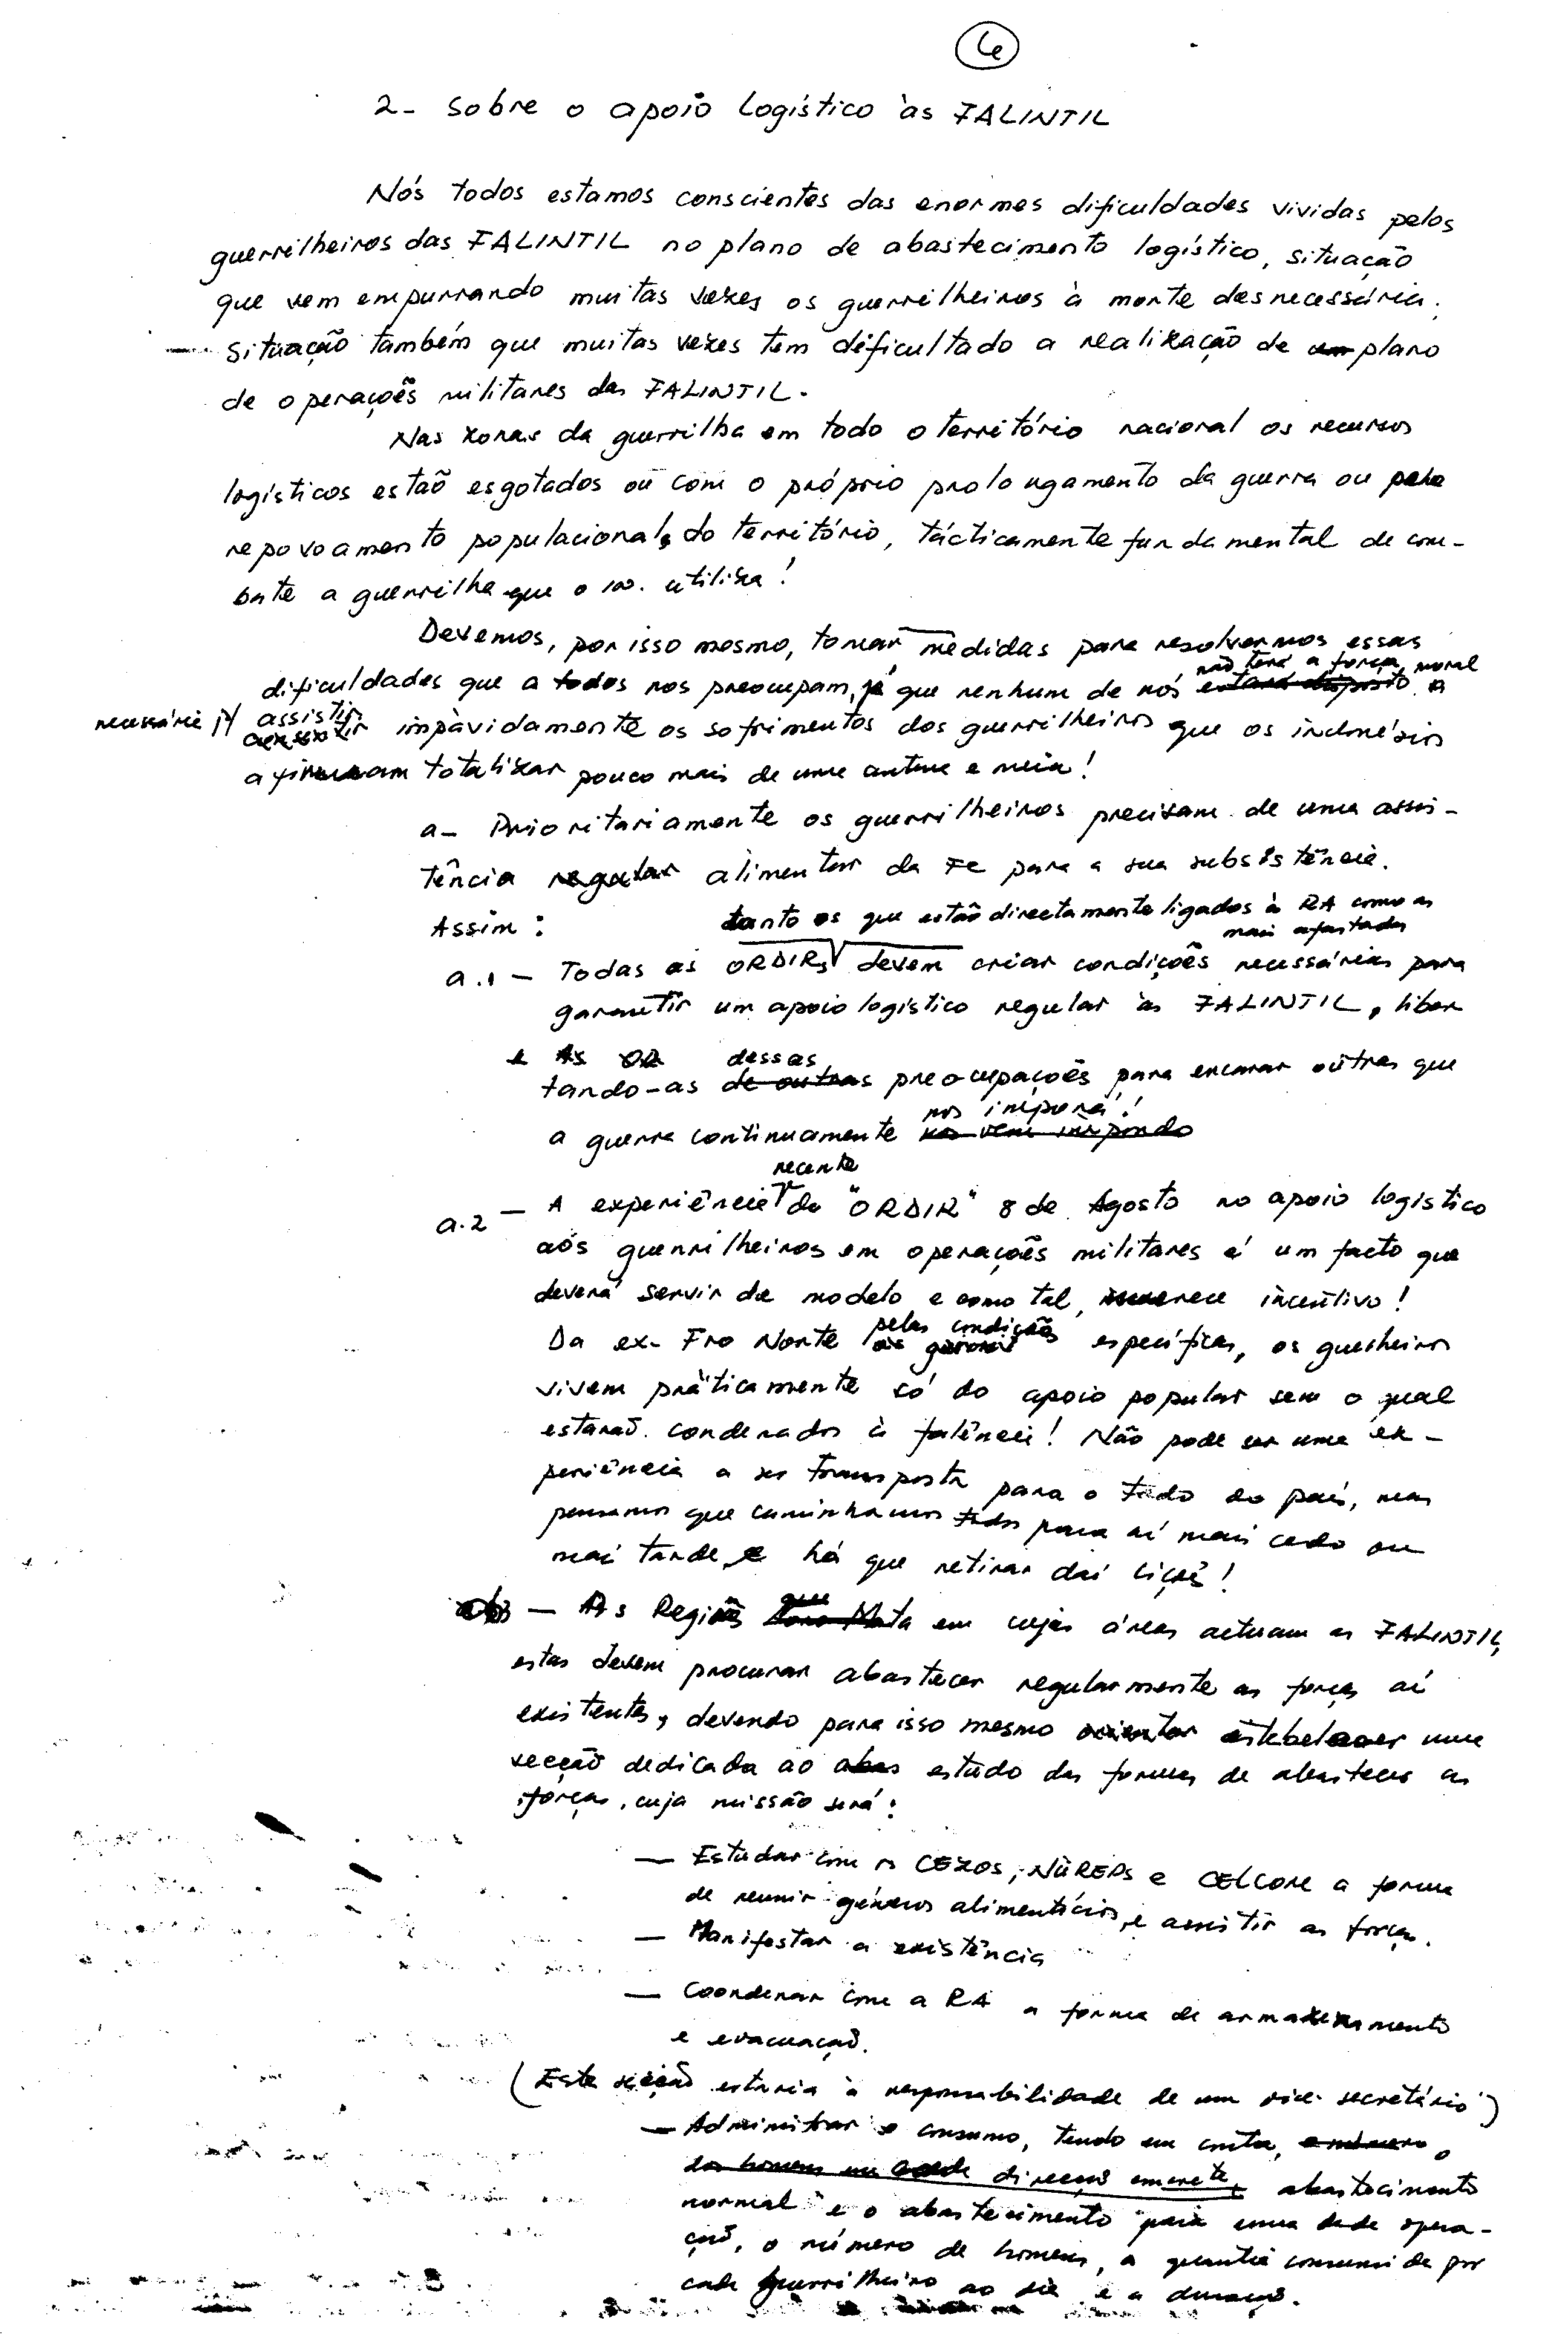 4
2- Sobre o apoio logístico às FALINTIL
Nós todos estamos conscientes das enormes dificuldades vividas pelos
guerrilheiros das FALINTIL no plano de abastecimento logístico, situação
que vem empurrando muitas vezes os guerrilheiros à morte desnecessária.
Situação também que muitas vezes tem dificultado a realização de um plano
de operações militares das FALINTIL.
Nas zonas da guerrilha em todo o território nacional os recursos
logísticos estão esgotados ou com o próprio prolongamento da guerra ou pelo
repovoamento populacional do território, tácticamente fundamental de com-
bate a guerrilha que o in. utiliza!
Devemos, por isso mesmo, tomar medidas para resolvermos essas
não terá a força moral
dificuldades que a todos nos preocupam, já que nenhum de nós estará disposto a
necessária p/ assistir
impávidamente os sofrimentos dos guerrilheiros que os indonésios
afirmam totalizar pouco mais de uma centena e meia!
a- Prioritariamente os guerrilheiros precisam de uma assis-
tência regular alimentar da Fc para a sua subsistência.
Assim: tanto os que estão directamente ligados à RA como as
mais afastadas
a.1 - Todas as ORDIRs devem criar condições necessárias para
garantir um apoio logístico regular às FALINTIL, liber
e As dessas
tando-as de outras preocupações para encarar outras que
nos imporá!
a guerra continuamente nos vem impondo
recente
a.2 - A experiência da "ORDIR" 8 de Agosto no apoio logístico
aós guerrilheiros em operações militares é um facto que
deverá servir de modelo e como tal, merece incentivo!
pelas condições
Da ex- Fro Norte específicas, os guerlheiros
vivem práticamente só do apoio popular sem o qual
estarão condenados à falência! Não pode ser uma ex-
periência a ser transposta para o todo do país, mas
pensamos que caminhamos todos para aí mais cedo ou
mais tarde e há que retirar daí lições!
que
- As Regiões em cujas áreas actuam as FALINTIL,
estas devem procurar abastecer regularmente as forças aí
existentes, devendo para isso mesmo estabelecer uma
secção dedicada ao estudo das formas de abastecer as
forças, cuja missão será:
- Estudar com os CEZOS, NUREPs e CELCOM a forma
de reunir géneros alimentícios, e assistir as forças.
- Manifestar a existência
- Coordenar com a RA a forma de armazenamento
e evacuação.
(Esta secção estaria à responsabilidade de um vice-secretário)
- Administrar o consumo, tendo em conta, o número o
dos homens em cada direcção concreta, abastecimento
normal e o abastecimento para uma dada opera-
ção, o número de homens, a quantia consumida por
cada guerrilheiro ao dia e a duração.